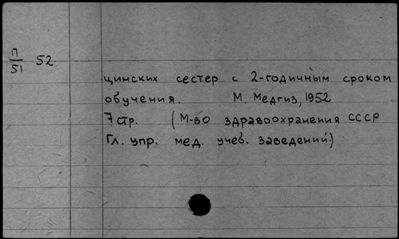 П
51 52
цинских сестер с 2-годичным сроком
обучения. М. Медгиз, 1952
7 стр. (М-во здравоохранения СССР
Гл. упр. мед. учеб. заведений)